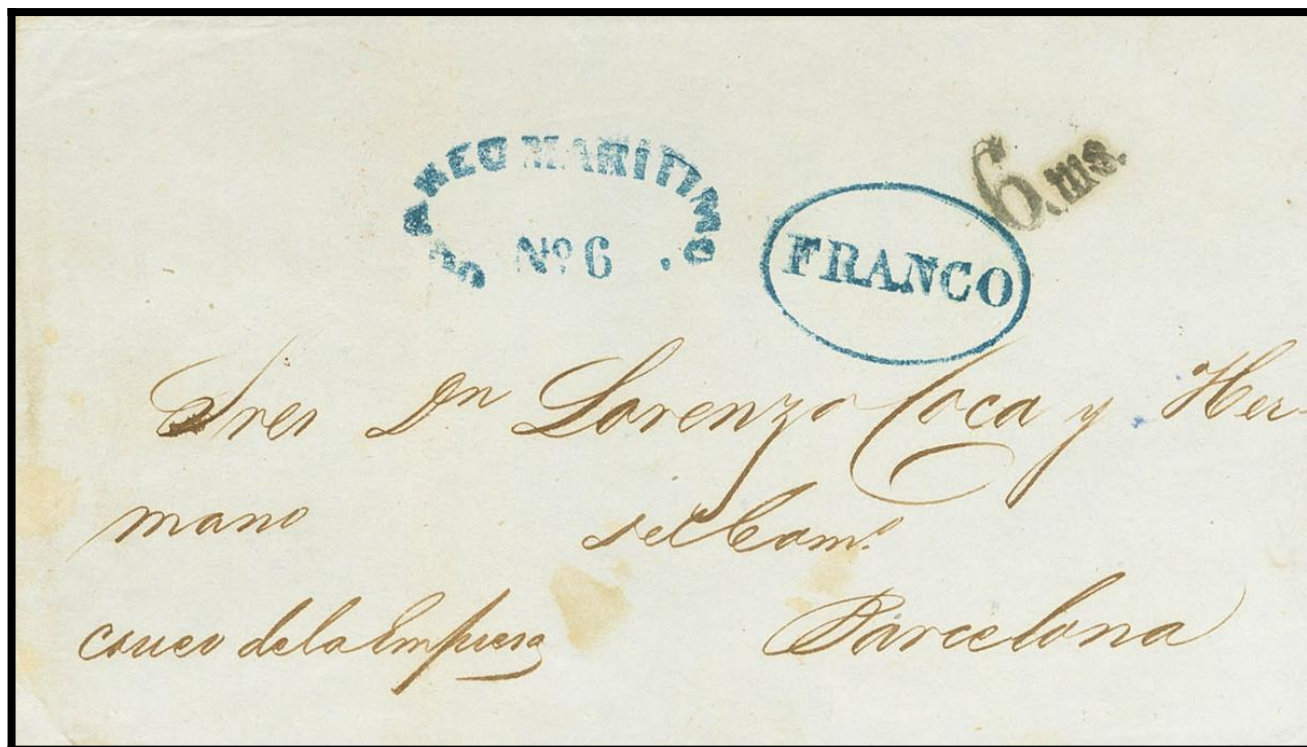 CORREO MARITIMO.
Nº 6
FRANCO
6.ms.
Sres Dn Lorenzo Coca y Her-
mano del Com.º
correo de la Empresa Barcelona